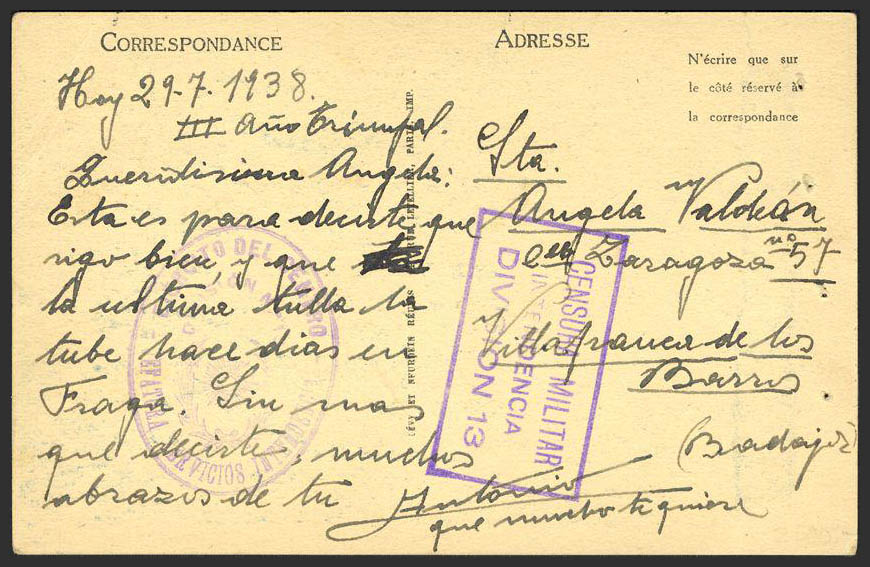 CORRESPONDANCE
Hoy 29-7-1938.
III Año Triunfal.
Queridisima Angela:
Esta es para decirte que
sigo bien, y que
la ultima tulla la
tube hace dias en
Fraga. Sin mas
que decirte, muchos
abrazos de tu
Antonio
que mucho te quiere
ADRESSE
N'écrire que sur
le côté réservé à
la correspondance
Sta.
Angela
Zaragoza nº 57
Villafranca de los
Barros
(Badajoz)
CENSURA MILITAR
INTENDENCIA
DIVISION 13
LÉVY ET NEURDEIN RÉUNIS LETELLIER, PARIS. IMP.